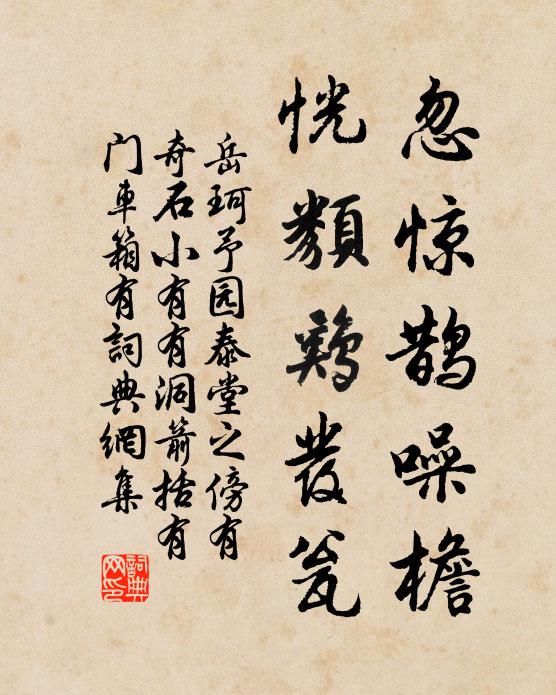 忽惊鵲噪檐
恍類鷄發瓮
岳珂予园泰堂之傍有
奇石小有有洞箭括有
门車箱有詞典網集
詞典
网印